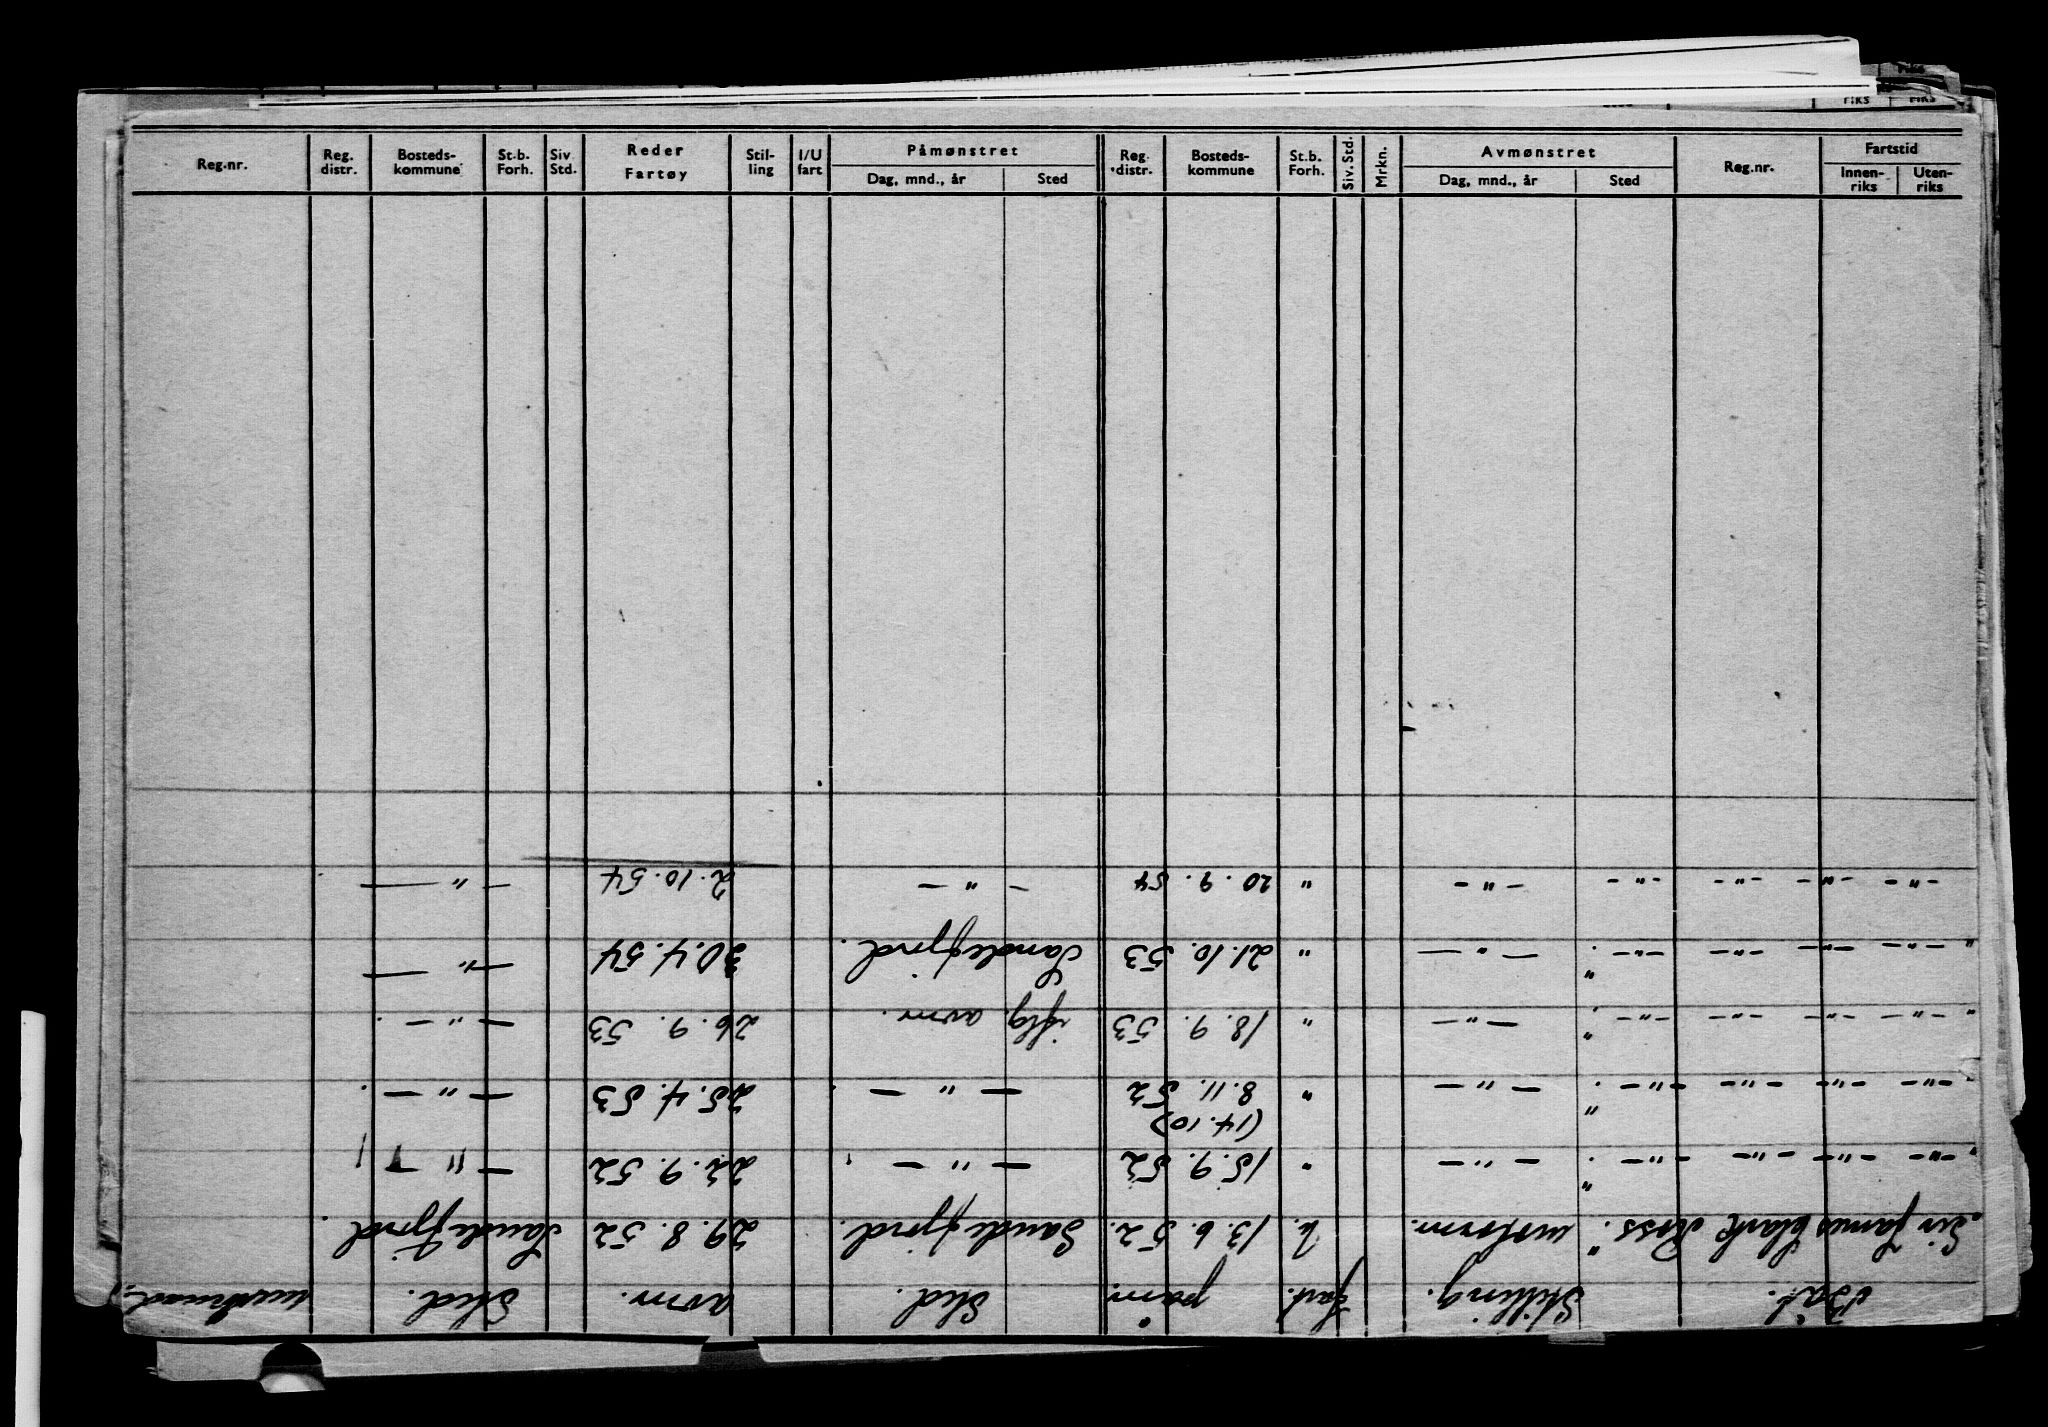 Reg.nr. Reg. distr. Bosteds-kommune St.b. Forh. Siv. Std. Reder Fartøy Stil-ling I/U fart Påmønstret Dag, mnd., år Sted Reg. distr. Bosteds-kommune St.b. Forh. Siv. Std. Mrkn. Avmønstret Dag, mnd., år Sted Reg.nr. Fartstid Innen-riks Uten-riks
riks riks
Båt. Stilling. Fart. påm. Sted. avm. Sted.
"Sir James Clark Ross". u. 13.6.52. Sandefjord. 29.8.52 Sandefjord.
" -"- -"- -"- -"- -"- -"- " 15.9.52 -"- 22.9.52 -"-
(14.10)
" -"- -"- -"- -"- -"- -"- " 8.11.52 -"- 25.4.53 -"-
" -"- -"- -"- -"- -"- " -"- " 18.9.53 iflg. avm. 26.9.53 -"-
" -"- -"- -"- -"- -"- " -"- " 21.10.53 Sandefjord. 30.4.54 -"-
-"- -"- -"- -"- -"- -"- " 20.9.54 -"- 2.10.54 -"-